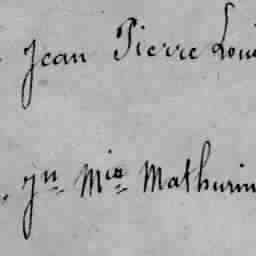 Jean Pierre Loui
Jn Mie Mathurin